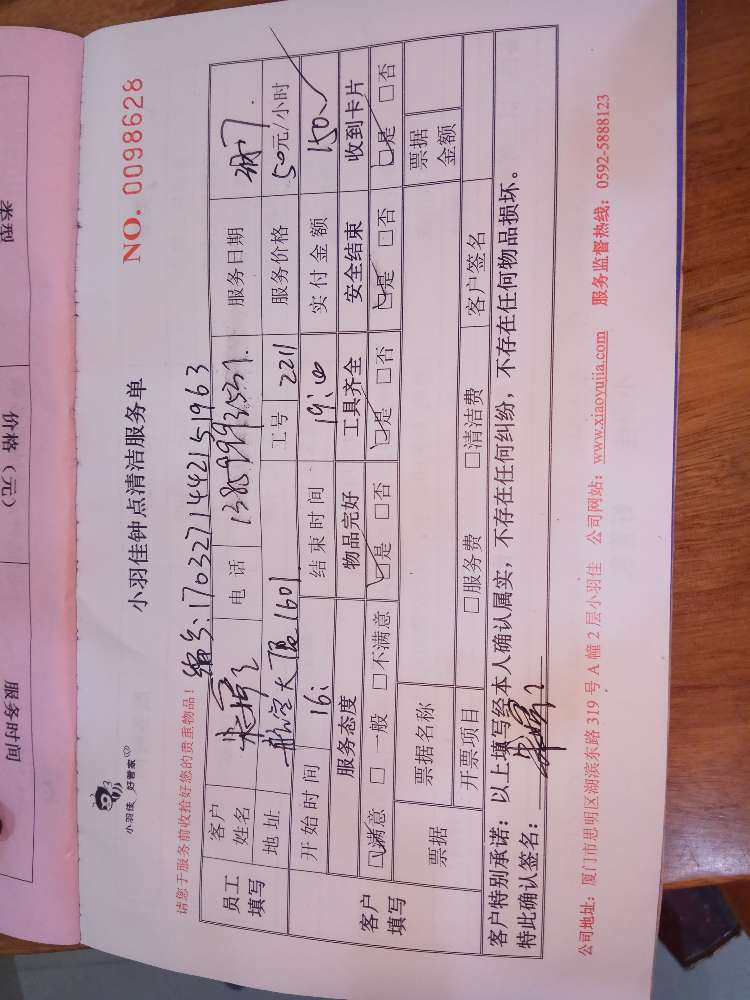 类型
价格（元）
服务时间
小羽佳 好管家
小羽佳钟点清洁服务单
NO. 0098628
请您于服务前收拾好您的贵重物品！
编号:1703271442151963
员工填写
客户姓名
电话
服务日期
地址 航空大厦1601
工号 2211
服务价格 50元/小时
开始时间 16:
结束时间 19:00
实付金额 150
客户填写
服务态度 物品完好 工具齐全 安全结束 收到卡片
满意 一般 不满意 是 否 是 否 是 否 是 否
票据 票据名称 票据金额
开票项目 服务费 清洁费 客户签名
客户特别承诺：以上填写经本人确认属实，不存在任何纠纷，不存在任何物品损坏。
特此确认签名：
公司地址：厦门市思明区湖滨东路319号A幢2层小羽佳 公司网站：www.xiaoyujia.com 服务监督热线：0592-5888123